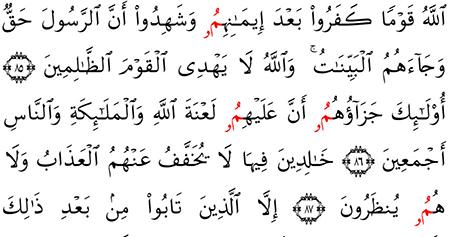 اللَّهُ قَوْمًا كَفَرُواْ بَعْدَ إِيمَـٰنِهِمُۥ وَشَهِدُواْ أَنَّ الرَّسُولَ حَقٌّ
وَجَآءَهُمُ الْبَيِّنَـٰتُۚ وَاللَّهُ لَا يَهْدِى الْقَوْمَ الظَّـٰلِمِينَ ٨٥
أُوْلَـٰٓئِكَ جَزَآؤُهُمُۥ أَنَّ عَلَيْهِمُۥ لَعْنَةَ اللَّهِ وَالْمَلَـٰٓئِكَةِ وَالنَّاسِ
أَجْمَعِينَ ٨٦ خَـٰلِدِينَ فِيهَا لَا يُخَفَّفُ عَنْهُمُ الْعَذَابُ وَلَا
هُمُۥ يُنظَرُونَ ٨٧ إِلَّا الَّذِينَ تَابُواْ مِنۢ بَعْدِ ذَٰلِكَ